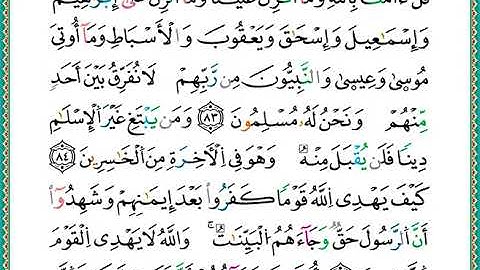 قُلْ ءَامَنَّا بِاللَّهِ وَمَا أُنزِلَ عَلَيْنَا وَمَا أُنزِلَ عَلَىٰ إِبْرَٰهِيمَ
وَإِسْمَٰعِيلَ وَإِسْحَٰقَ وَيَعْقُوبَ وَالْأَسْبَاطِ وَمَا أُوتِيَ
مُوسَىٰ وَعِيسَىٰ وَالنَّبِيُّونَ مِن رَّبِّهِمْ لَا نُفَرِّقُ بَيْنَ أَحَدٍ
مِّنْهُمْ وَنَحْنُ لَهُ مُسْلِمُونَ ٨٣ وَمَن يَبْتَغِ غَيْرَ الْإِسْلَٰمِ
دِينًا فَلَن يُقْبَلَ مِنْهُ وَهُوَ فِي الْآخِرَةِ مِنَ الْخَٰسِرِينَ ٨٤
كَيْفَ يَهْدِي اللَّهُ قَوْمًا كَفَرُوا بَعْدَ إِيمَٰنِهِمْ وَشَهِدُوا
أَنَّ الرَّسُولَ حَقٌّ وَجَاءَهُمُ الْبَيِّنَٰتُ وَاللَّهُ لَا يَهْدِي الْقَوْمَ